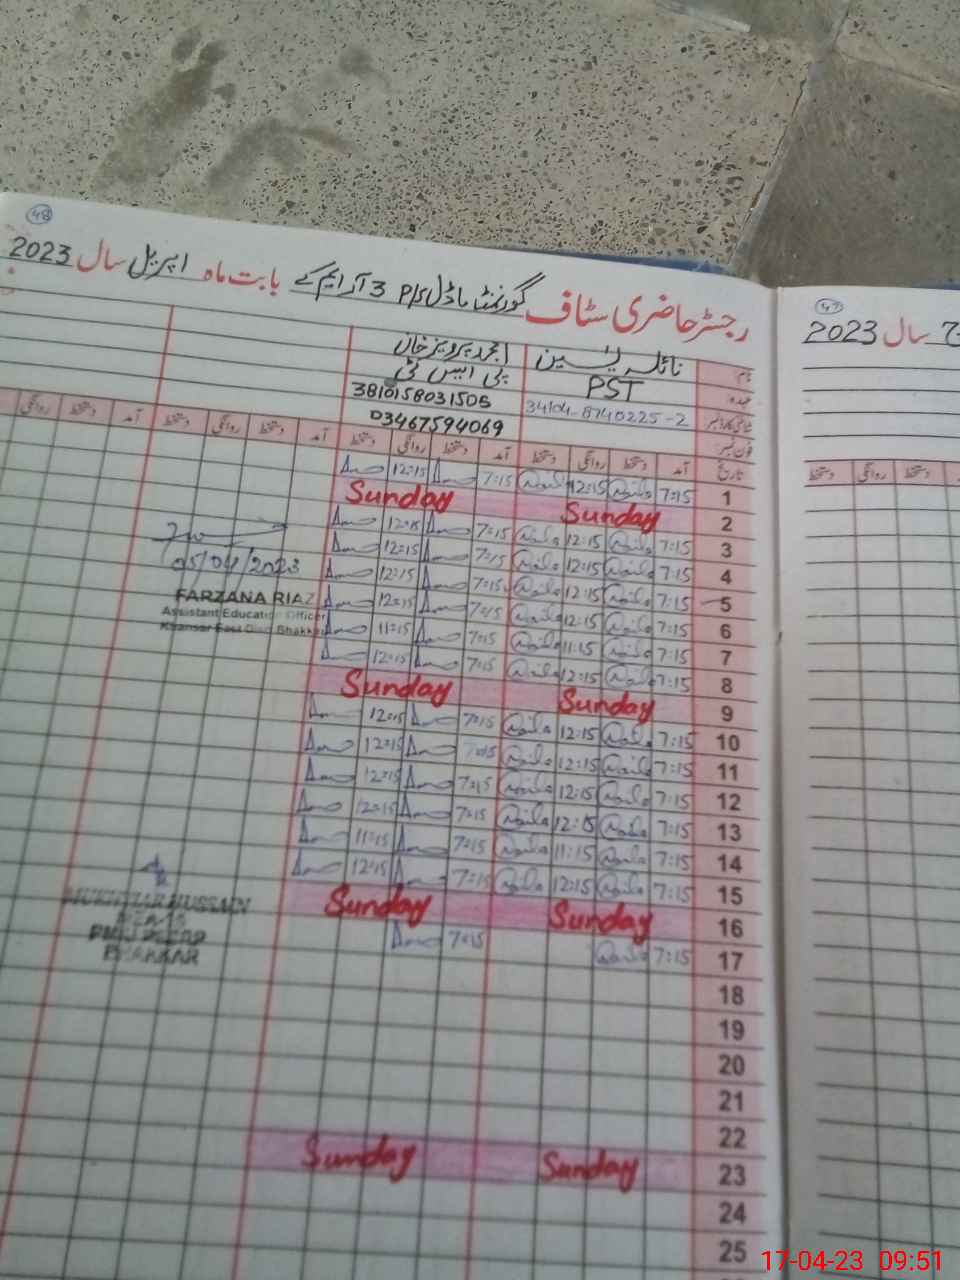 48
رجسٹر حاضری سٹاف گورنمنٹ ماڈل P/S 3 آر ایم کے بابت ماہ اپریل سال 2023
47
سال 2023
نام نائلہ یٰسین امجد پرویز خان
عہدہ PST پی ایس ٹی
شناختی کارڈ نمبر 34104-8740225-2 3810158031505
فون نمبر 03467594069
تاریخ آمد دستخط روانگی دستخط آمد دستخط روانگی دستخط آمد دستخط روانگی دستخط آمد دستخط روانگی
آمد دستخط روانگی دستخط
1 7:15 Naila 12:15 Naila 7:15 12:15
2 Sunday Sunday
3 7:15 Naila 12:15 Naila 7:15 12:15
4 7:15 Naila 12:15 Naila 7:15 12:15
5 7:15 Naila 12:15 Naila 7:15 12:15
6 7:15 Naila 12:15 Naila 7:15 12:15
7 7:15 Naila 11:15 Naila 7:15 11:15
8 7:15 Naila 12:15 Naila 7:15 12:15
9 Sunday Sunday
10 7:15 Naila 12:15 Naila 7:15 12:15
11 7:15 Naila 12:15 Naila 7:15 12:15
12 7:15 Naila 12:15 Naila 7:15 12:15
13 7:15 Naila 12:15 Naila 7:15 12:15
14 7:15 Naila 11:15 Naila 7:15 11:15
15 7:15 Naila 12:15 Naila 7:15 12:15
16 Sunday Sunday
17 7:15 Naila 7:15
18
19
20
21
22
23 Sunday Sunday
24
25
05/04/2023
FARZANA RIAZ
Assistant Education Officer
Khansar East Distt Bhakkar
MUKHTIAR HUSSAIN
MEA-15
PMIU PESRP
BHAKKAR
17-04-23 09:51